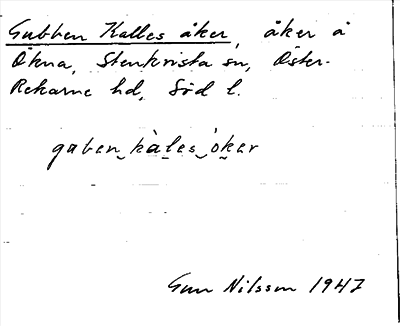 Gubben Kalles åker, åker å
Ökna, Stenkvista sn, Öster-
Rekarne hd, Söd l.
guben kàles ókær
Gun Nilsson 1947